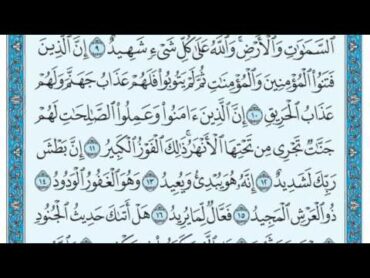 السَّمَٰوَٰتِ وَالْأَرْضِ ۚ وَاللَّهُ عَلَىٰ كُلِّ شَيْءٍ شَهِيدٌ ۝٩ إِنَّ الَّذِينَ
فَتَنُوا الْمُؤْمِنِينَ وَالْمُؤْمِنَٰتِ ثُمَّ لَمْ يَتُوبُوا فَلَهُمْ عَذَابُ جَهَنَّمَ وَلَهُمْ
عَذَابُ الْحَرِيقِ ۝١٠ إِنَّ الَّذِينَ ءَامَنُوا وَعَمِلُوا الصَّٰلِحَٰتِ لَهُمْ
جَنَّٰتٌ تَجْرِي مِن تَحْتِهَا الْأَنْهَٰرُ ۚ ذَٰلِكَ الْفَوْزُ الْكَبِيرُ ۝١١ إِنَّ بَطْشَ
رَبِّكَ لَشَدِيدٌ ۝١٢ إِنَّهُ هُوَ يُبْدِئُ وَيُعِيدُ ۝١٣ وَهُوَ الْغَفُورُ الْوَدُودُ ۝١٤
ذُو الْعَرْشِ الْمَجِيدُ ۝١٥ فَعَّالٌ لِّمَا يُرِيدُ ۝١٦ هَلْ أَتَىٰكَ حَدِيثُ الْجُنُودِ